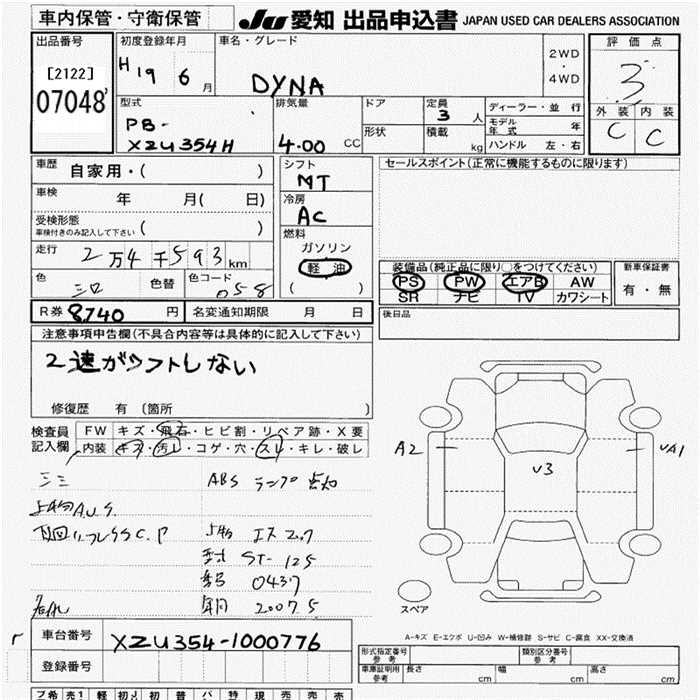 車内保管・守衛保管 JU 愛知 出品申込書 JAPAN USED CAR DEALERS ASSOCIATION
出品番号 初度登録年月 車名・グレード 2WD・4WD 評価点
[2122] H 19 6 月 DYNA 3
07048
型式 排気量 ドア 定員 3 人 ディーラー・並行 外装 内装
PB- モデル年式 年 C C
XZU354H 4.00 CC 形状 積載 kg ハンドル 左・右
車歴 自家用・( ) シフト セールスポイント(正常に機能するものに限ります)
MT
車検 年 月( 日) 冷房
AC
受検形態 ( )
車検付きのみ記入して下さい
燃料
走行 2万4千593km ガソリン
色 シロ 色替 色コード 058 軽油
( )
装備品(純正品に限り○をつけてください) 新車保証書
PS PW エアB AW 有・無
SR ナビ TV カワシート
R券 8,740 円 名変通知期限 月 日 後日品
注意事項申告欄(不具合内容等は具体的に記入して下さい)
2速がシフトしない
修復歴 有 (箇所 )
検査員記入欄 FW キズ・飛石・ヒビ割・リペア跡・X要
内装 キズ・汚レ・コゲ・穴・スレ・キレ・破レ
A2 U3 UA1
ABS ランプ 点灯
上物 A.U.S.
上物
型式 ST-125
番号 0437
年月 2007.5
スペア
A-キズ E-エクボ U-凹み W-補修跡 S-サビ C-腐食 XX-交換済
車台番号 XZU354-1000776
登録番号
形式指定番号 参考 類別区分番号 参考
車庫証明用 参考 長さ cm 幅 cm 高さ cm